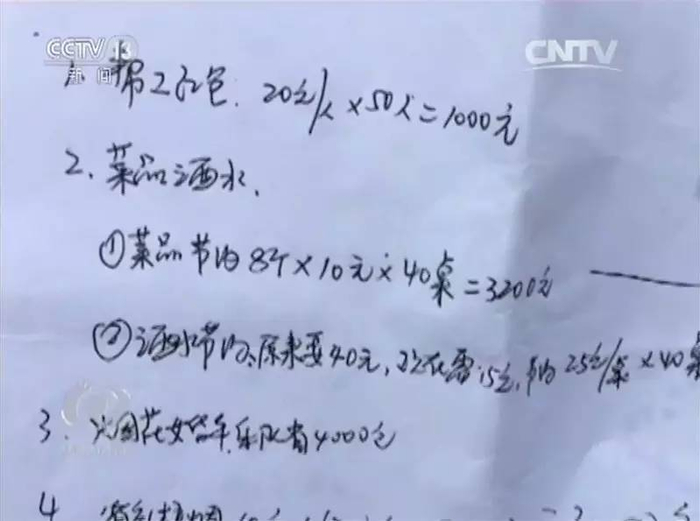 CCTV 13
新闻
CNTV
1. 帮工红包: 20元/人×50人=1000元
2. 菜品酒水、
①菜品节约8个×10元×40桌=3200元
②酒水节约:原来要40元,现在需15元,节约25元/桌×40桌
3、火图花女婚车乐队省4000元
4